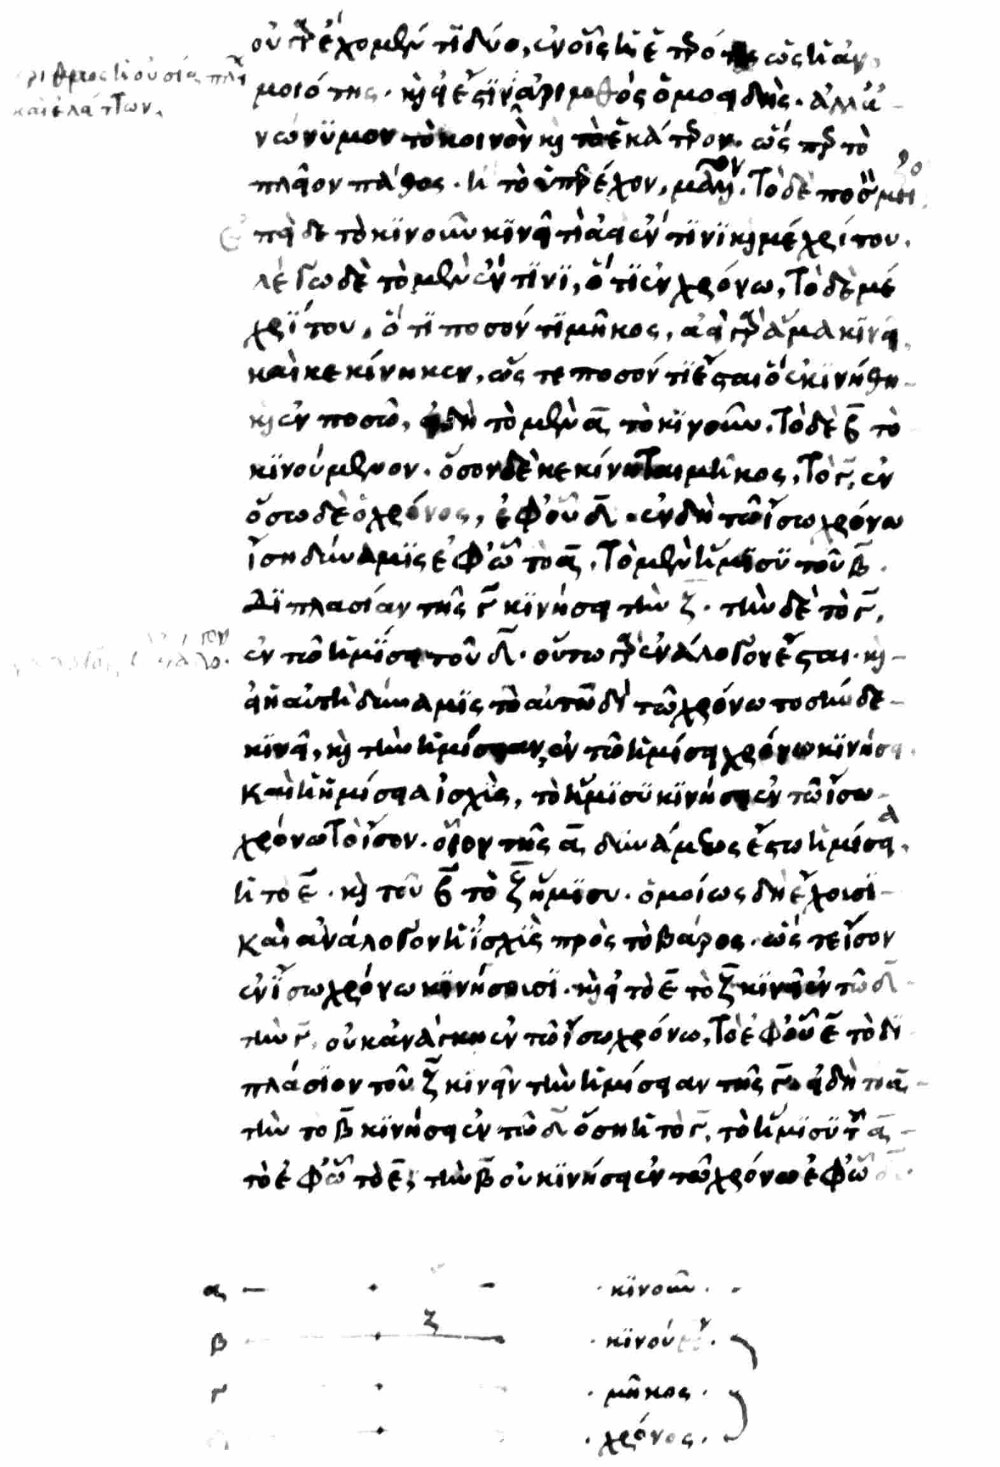 οὐ γὰρ ἔχομεν τῖ δύο, ἐν οἷς ἡ ἑτερότης ὡς ἡ ἀνο
μοιότης· καὶ εἰ ἔστϊν ἀριθμὸς ὁμοειδής. ἀλλ' ἀ-
νώνϋμον τὸ κοινὸν καὶ τὸ ἑκάτερον. ὥς περ τὸ
πλεῖον πάθος· ἢ τὸ ὑπερέχον, μᾶλλον. Τὸ δὲ ποσὸν μεῖζον
ἐπεὶ δὲ τὸ κϊνοῦν κϊνεῖ τὶ ἀεὶ ἔν τϊνϊ καὶ μέχρι του.
λέγω δὲ τὸ μὲν ἔν τϊνϊ, ὅτϊ ἐν χρόνω, Τὸ δὲ μέ
χρϊ του, ὅτϊ ποσόν τϊ μῆκος, ἀεὶ γὰρ ἅμα κϊνεῖ,
καὶ κεκίνηκεν, ὥς τε ποσόν τϊ ἔσται ὃ ἐκϊνήθη
καὶ ἐν ποσῶ, εἰ δὴ τὸ μὲν α̅ τὸ κϊνοῦν, Τὸ δὲ β̅ τὸ
κϊνούμενον. ὅσον δὲ κεκίνηται μῆκος, Τὸ γ̅, ἐν
ὅσω δὲ ὁ χρόνος, ἐφ' οὗ δ̅. ἐν δὴ τῶ ἴσω χρόνω
ἴση δύναμϊς ἐφ' ὧ τὸ α̅. Τὸ μὲν ἥμϊσϋ τοῦ β̅.
Δϊπλασίαν τῆς γ̅ κϊνήσει τὴν ζ̅. τὴν δὲ τὸ γ̅,
ἐν τῶ ἡμϊσει τοῦ δ̅. οὕτω γὰρ ἀνάλογον ἔσται. καὶ
εἰ ἡ αὐτὴ δύναμϊς τὸ αὐτὸ ἐν τῶδϊ τῶ χρόνω τοσήνδε
κϊνεῖ, καὶ τὴν ἡμίσειαν, ἐν τῶ ἡμίσει χρόνω κϊνήσει.
Καὶ ἡ ἡμίσεια ἰσχὺς, τὸ ἥμϊσϋ κϊνήσει ἐν τῶ ἴσω
χρόνω Τὸ ἴσον. οἷον τῆς α̅ δυνάμεως ἔστω ἡμίσεια
ἡ τὸ ε̅. καὶ τοῦ β̅ τὸ ζ̅ ἥμϊσυ. ὁμοίως δὴ ἔχουσϊ
Καὶ ἀνάλογον ἡ ἰσχὺς πρὸς τὸ βάρος. ὥς τε ἴσον
ἐν ἴσω χρόνω κϊνήσουσϊ. καὶ εἰ τὸ ε̅ τὸ ζ̅ κϊνεῖ ἐν τῶ δ̅
τὴν γ̅, οὐκ ἀνάγκη ἐν τῶ ἴσω χρόνω, Τὸ ἐφ' οὗ ε̅ τὸ δϊ
πλάσϊον τοῦ ζ̅ κϊνεῖν τὴν ἡμίσειαν τῆς γ̅. εἰ δὴ τὸ α̅,
τὴν τὸ β̅ κϊνήσει ἐν τῶ δ̅ ὅση ἡ τὸ γ̅, τὸ ἥμϊσϋ τοῦ α̅
τὸ ἐφ' ὧ τὸ ε̅, τὴν β̅ οὐ κϊνήσει ἐν τῶ χρόνω ἐφ' ὧ δ̅.
α κϊνοῦν
β ζ κϊνούμενον
γ μῆκος
χρόνος